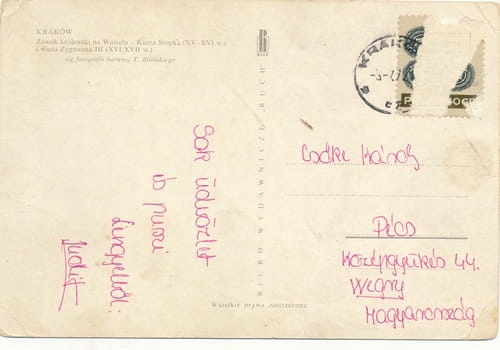 KRAKÓW
Zamek królewski na Wawelu - Kurza Stopka (XV-XVI w.)
i wieża Zygmunta III (XVI/XVII w.)
wg fotografii barwnej T. Bilińskiego
BIURO WYDAWNICZE RUCH
Wszelkie prawa zastrzeżone
KRAK
Sok üdvözlet
és puszi
Lengyelből:
Judit
Csőke
Pécs
Középgyükés 44.
Węgry
Magyarország